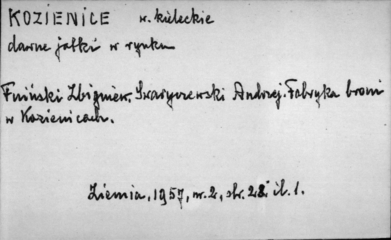 KOZIENICE w. kieleckie
dawne jatki w rynku
Zbigniew, Swaryczewski Andrzej. Fabryka broni
w Kozienicach.
Ziemia, 1957, nr. 2, str. 28. il. 1.